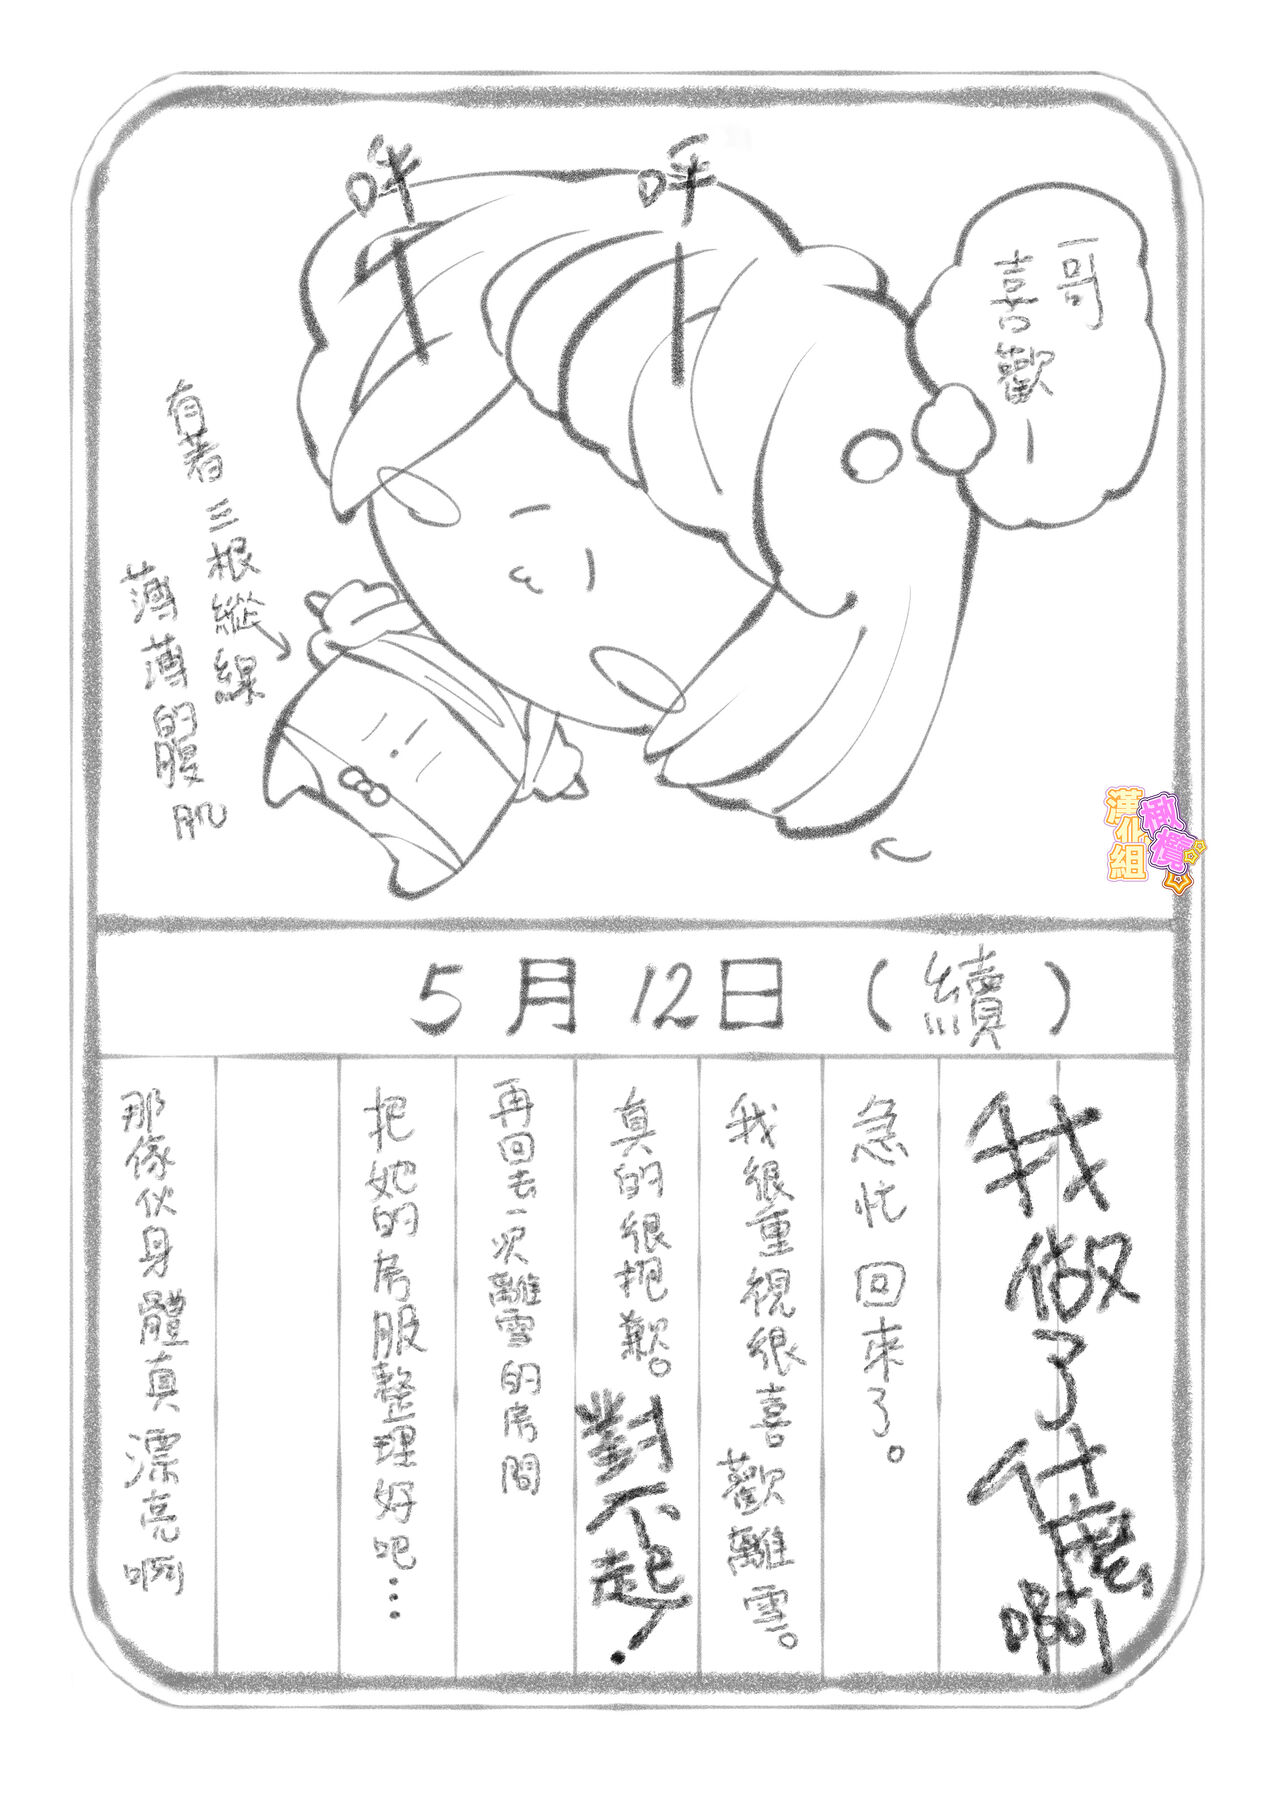 哥
喜歡ー
呼ー
呼ー
有著三根縱線
薄薄的腹肌
橄欖
漢化組
5月12日（續）
我做了什麼啊
急忙回來了。
我很重視很喜歡離雪。
真的很抱歉。對不起！
再回去一次離雪的房間
把她的居服整理好吧…
那傢伙身體真漂亮啊